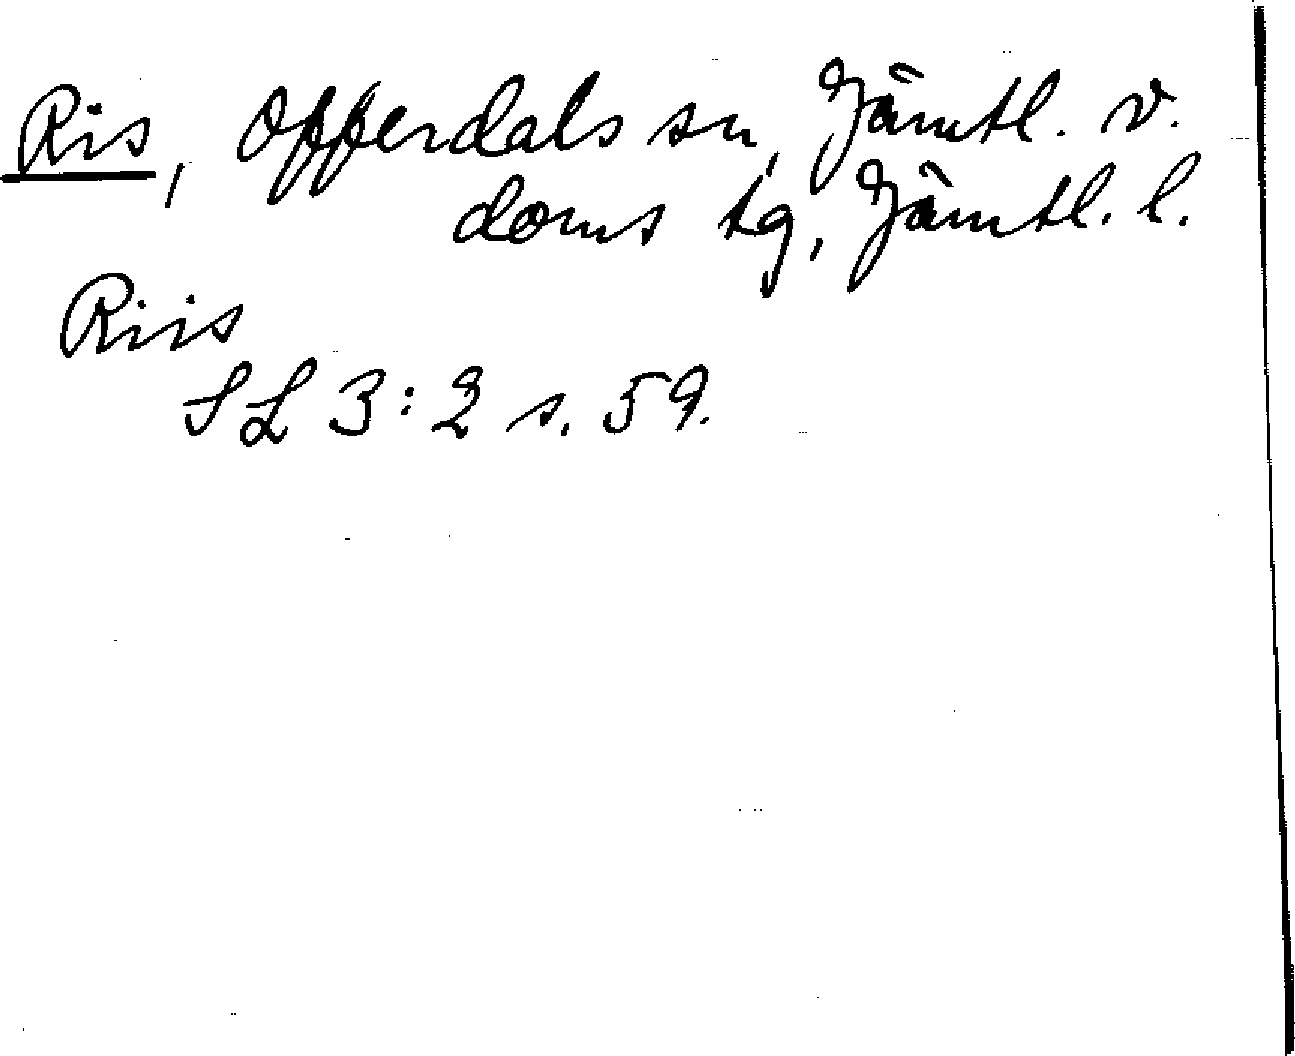 Ris, Offerdals sn, Jämtl. v.
doms tg, Jämtl. l.
Riis
SL 3:2 s. 59.